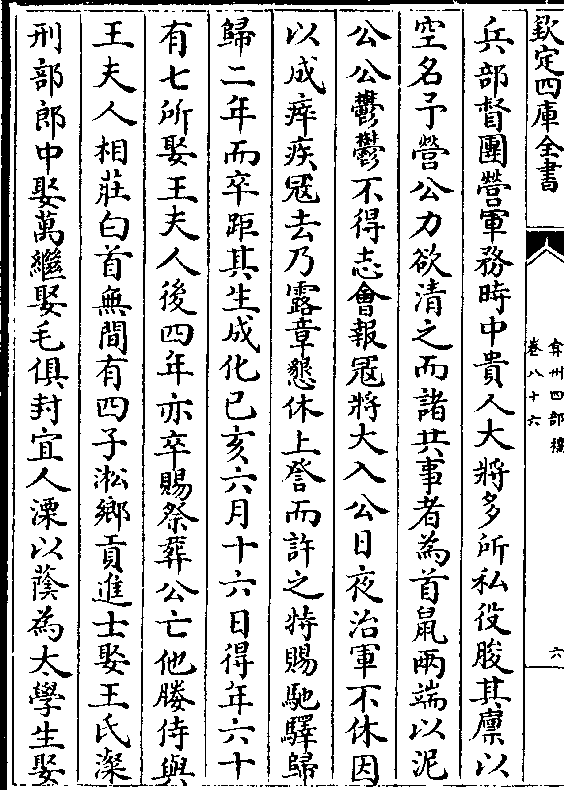 欽定四庫全書
弇州四部稿
卷八十六
六
兵部督團營軍務時中貴人大將多所私役朘其廪以
空名予營公力欲清之而諸共事者為首鼠兩端以泥
公公鬱鬱不得志會報冦將大入公日夜治軍不休因
以成瘁疾冦去乃露章懇休上詧而許之特賜馳驛歸
歸二年而卒距其生成化己亥六月十六日得年六十
有七所娶王夫人後四年亦卒賜祭葬公亡他媵侍與
王夫人相莊白首無間有四子淞鄉貢進士娶王氏濙
刑部郎中娶萬繼娶毛俱封宜人溧以蔭為太學生娶